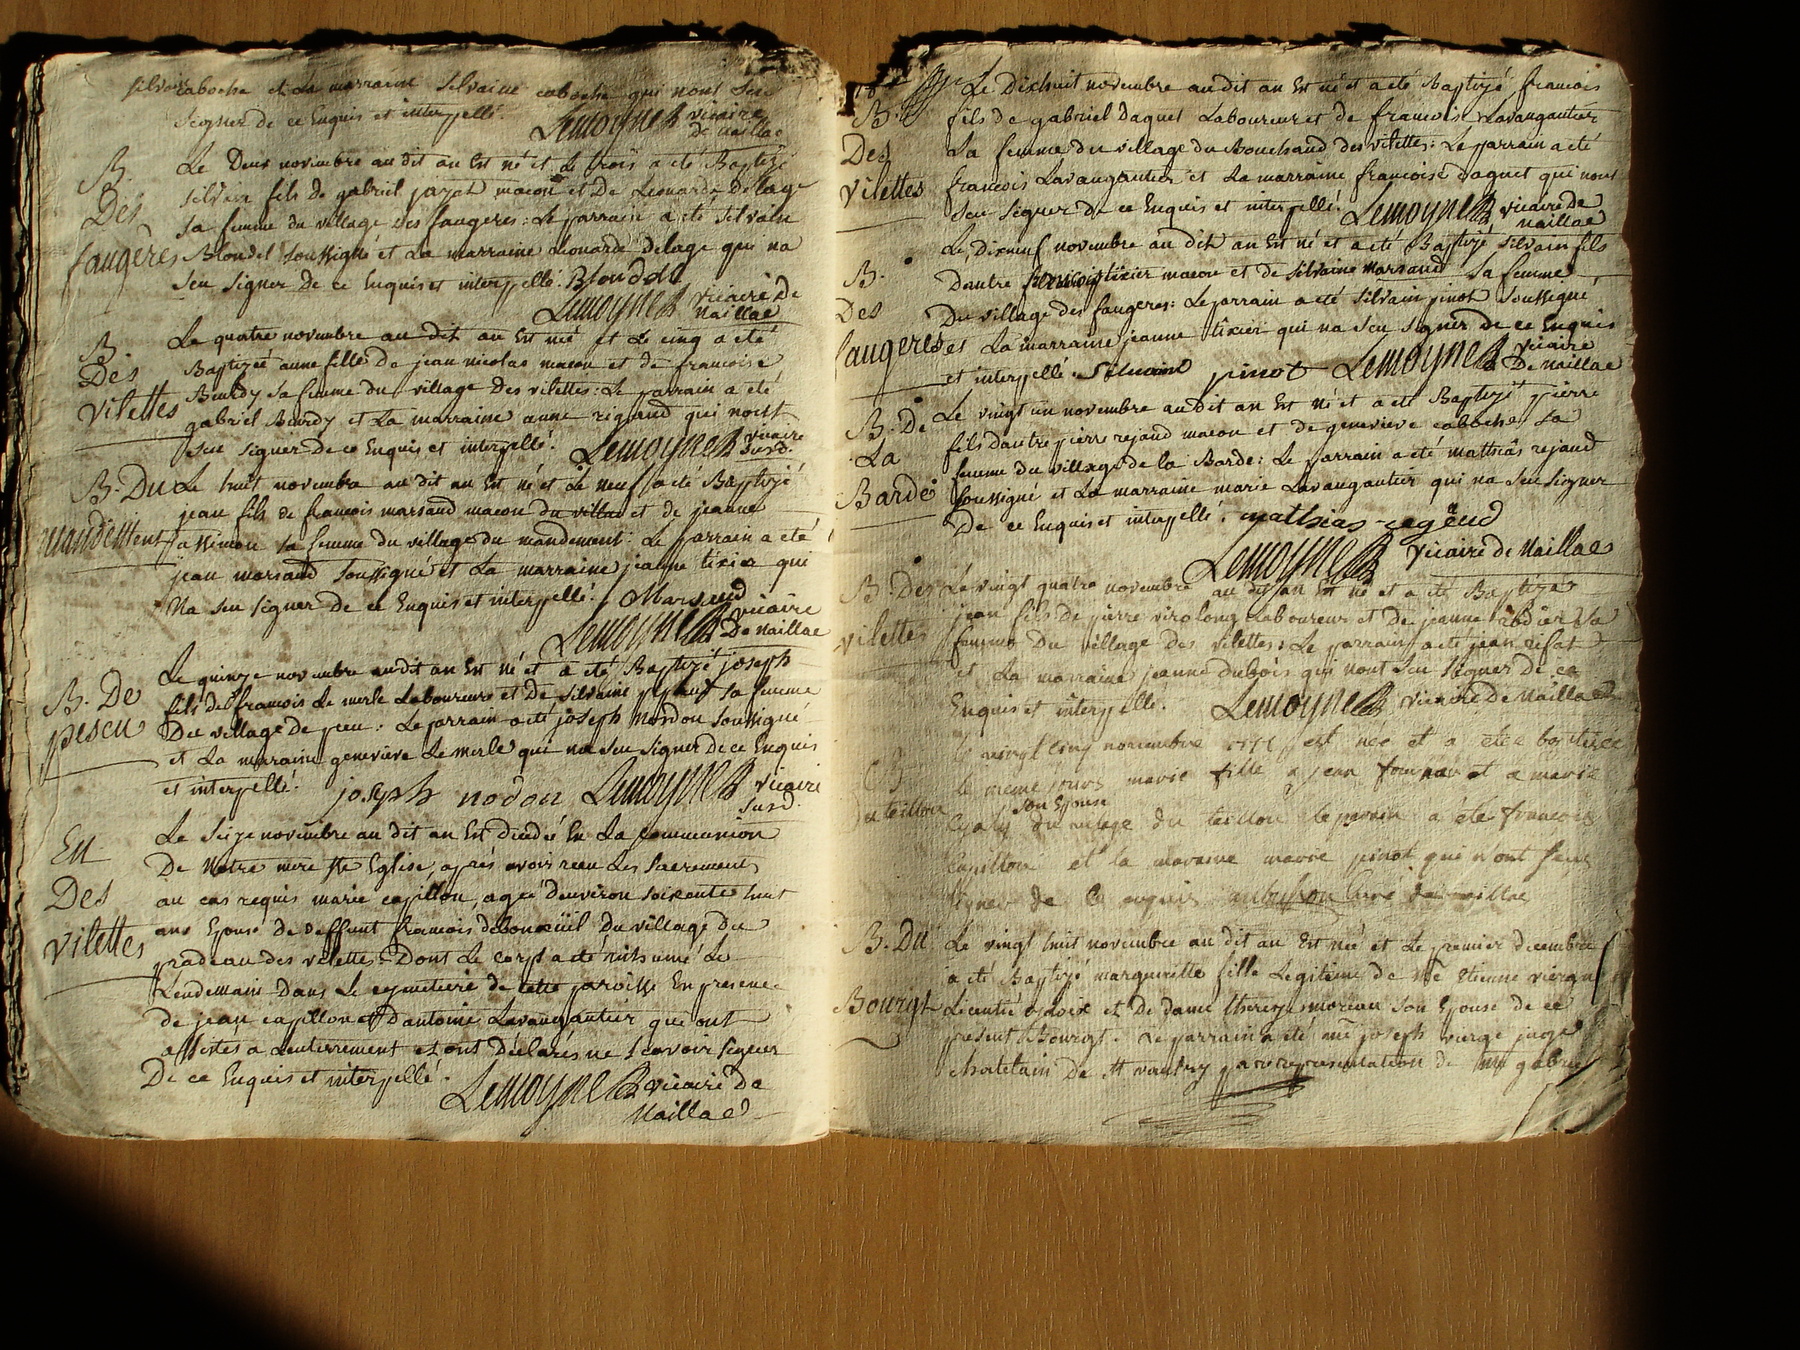 silvain caboche et la marraine silvaine caboche qui nont seu
signer de ce Enquis et interpellé.
Lemoyne vicaire
de naillac
B.
Des
faugères
Le Deux novembre au dit an Est né et Le trois a eté Baptizé
silvain fils de gabriel jazat macon et De Leonarde Delage
sa femme du village des faugeres: Le parrain a eté silvain
Blondel soussigné et La marraine Léonarde delage qui na
seu signer De ce Enquis et interpellé. Blondel
Lemoyne vicaire de
naillac
B.
Des
vilettes
Le quatre novembre au dit an Est née et Le cinq a eté
Baptizée anne fille De jean nicolas macon et de francoise
Bourdy sa femme du village Des vilettes: Le parrain a eté
gabriel Bourdy et La marraine anne rigaud qui nont
seu signer de ce Enquis et interpellé. Lemoyne vicaire
susd.
B. Du
mandement
Le huit novembre au dit an Est né et Le neuf a eté Baptizé
jean fils de francois marsaud macon du villa et de jeanne
assimon sa femme du village du mandement: Le parrain a eté
jean marsaud soussigné et La marraine jeanne tixier qui
Na seu signer de ce Enquis et interpellé. Marsaud
Lemoyne vicaire
De naillac
B. De
peseu
Le quinze novembre audit an Est né et a eté Baptizé joseph
fils de francois Le merle Laboureur et De silvaine sa femme
Du village de peu: Le parrain a eté joseph nordon soussigné
et La marraine genevieve Le merle qui na seu signer de ce Enquis
et interpellé. joseph nodon Lemoyne vicaire
susd.
En
Des
vilettes
Le Seize novembre au dit an Est Decedée En La communion
De Notre mere Ste Eglise, après avoir receu Les Sacrements
au cas requis marie capillon, agée d'environ soixante huit
ans Epouse de deffunt francois debonnoüil Du village du
pradeau des vilettes Dont Le corps a eté inhumé Le
Lendemain Dans Le cymetiere de cette paroisse En presence
de jean capillon et d'antoine Lavaugautier qui ont
assistés a L'enterrement et ont Déclarés ne scavoir signer
De ce Enquis et interpellé.
Lemoyne vicaire de
Naillac
B.
Des
vilettes
Le Dixhuit novembre au dit an Est né et a eté Baptizé francois
fils de gabriel Daguet Laboureur et de francoise Lavaugautier
sa femme du village du Bouchaud des vilettes: Le parrain a eté
francois Lavaugautier et La marraine francoise daguet qui nont
seu signer de ce Enquis et interpellé. Lemoyne vicaire de
naillac
B.
Des
faugeres
Le Dixneuf novembre au dit an Est né et a eté Baptizé silvain fils
Dautre tixier macon et de silvaine marsaud sa femme
Du village des faugeres: Le parrain a eté silvain pinot soussigné
et La marraine jeanne tixier qui na seu signer de ce Enquis
et interpellé. Silvain pinot Lemoyne vicaire
De naillac
B. De
La
Barde
Le vingt un novembre au dit an Est né et a eté Baptizé pierre
fils dautre pierre rejaud macon et de genevieve caboche sa
femme du village de la Barde: Le parrain a eté matthias rejaud
soussigné et La marraine marie Lavaugautier qui na seu signer
De ce Enquis et interpellé. mathias regeud
Lemoyne vicaire de Naillac
B. Des
vilettes
Le vingt quatre novembre au dit an Est né et a eté Baptizé
jean fils de pierre virolong Laboureur et De jeanne sa
femme Du village des vilettes: Le parrain a eté jean refat
et La marraine jeanne dubois qui nont seu signer de ce
Enquis et interpellé. Lemoyne vicaire De Naillac
B
du teillou
le vingt cinq novembre est née et a étée baptizée
le meme jours marie fille a jean et a marie
son Epouse
du vilage du teillou le parrain a été francois
Capillon et la maraine marie pinot qui n'ont seus
signer de ce enquis Curé de naillac
B. Du
Bourgt
Le vingt huit novembre au dit an Est née et Le premier decembre
a eté Baptizé margueritte fille Legitime de Me Etienne vierge
Licentié es Loix et De dame thereze moreau son Epouse de ce
present Bourgt. Le parrain a eté me joseph vierge juge
chatelain De St vaulry par representation de me gabriel